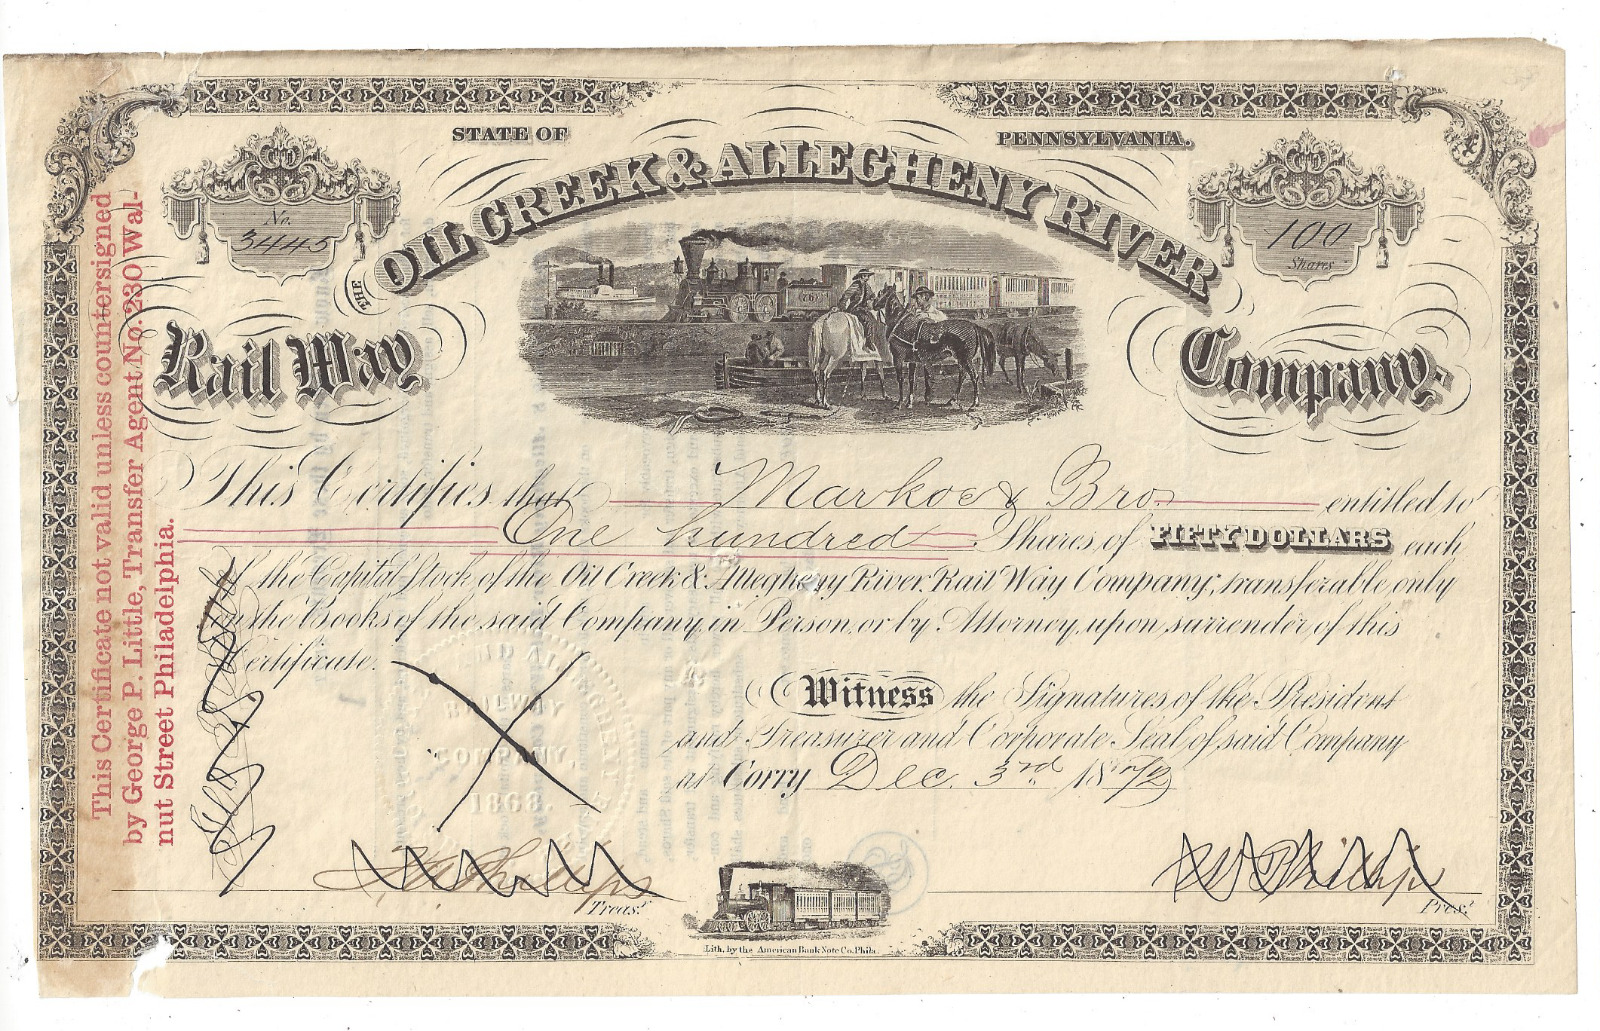 STATE OF PENNSYLVANIA.
No. 3445
100 Shares
THE OIL CREEK & ALLEGHENY RIVER
Rail Way Company.
(76)
This Certifies that Markoe & Bros entitled to
One hundred Shares of FIFTY DOLLARS each
of the Capital Stock of the Oil Creek & Allegheny River Rail Way Company, transferable only
on the Books of the said Company, in Person, or by Attorney, upon surrender of this
Certificate.
Witness the Signatures of the President
and Treasurer and Corporate Seal of said Company
at Corry Dec. 3rd 1872
RAILWAY
COMPANY,
1868.
Phillips
Treasr.
Phillips
Prest.
Lith. by the American Bank Note Co. Phila.
This Certificate not valid unless countersigned
by George P. Little, Transfer Agent No. 230 Wal-
nut Street Philadelphia.